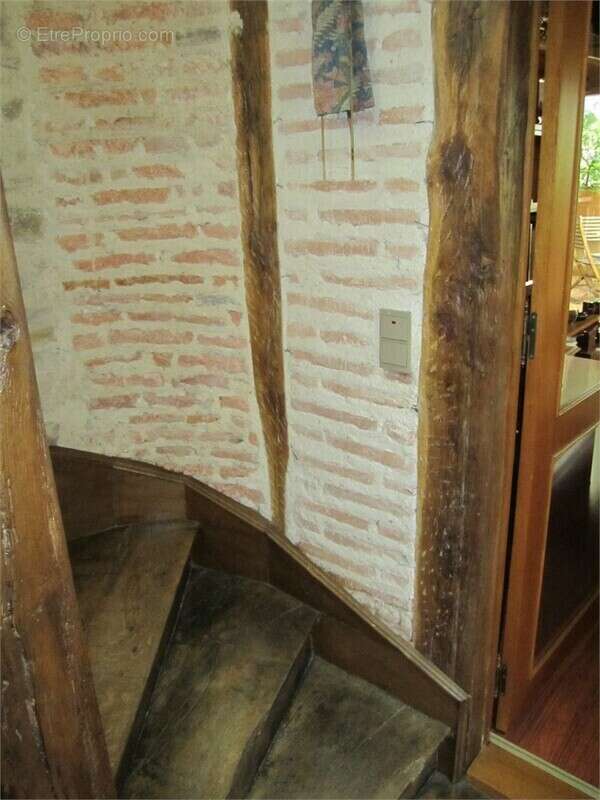 © EtreProprio.com